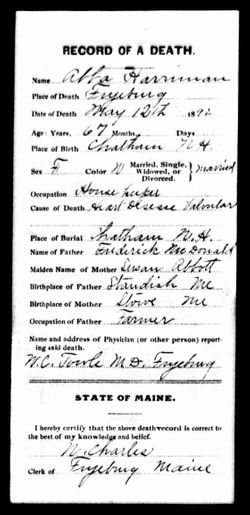 RECORD OF A DEATH.
Name Abba Harriman
Place of Death Fryeburg
Date of Death May 12th 1892
Age: Years, 67 Months, Days
Place of Birth Chatham N.H.
Sex F Color W Married, Single, Widowed, or Divorced. } Married
Occupation House Keeper
Cause of Death Heart Disease Valvular
Place of Burial Chatham N.H.
Name of Father Frederick McDonald
Maiden Name of Mother Susan Abbott
Birthplace of Father Standish Me
Birthplace of Mother Stowe Me
Occupation of Father Farmer
Name and address of Physician (or other person) report-
ing said death.
W.C. Towle M.D. Fryeburg
STATE OF MAINE.
I hereby certify that the above death record is correct to
the best of my knowledge and belief.
N. Charles
Clerk of Fryeburg Maine